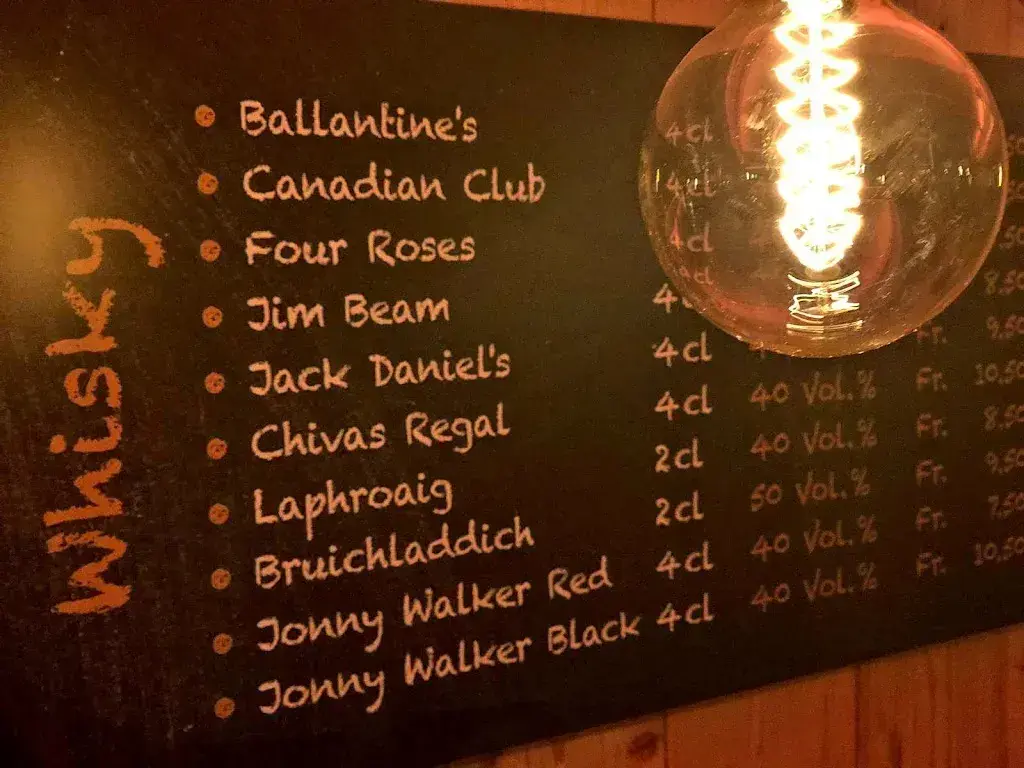 Whisky
Ballantine's 4cl
Canadian Club 4cl
Four Roses 4cl
Jim Beam 8.50
Jack Daniel's 4cl Fr. 9.50
Chivas Regal 4cl 40 Vol.% Fr. 10.50
Laphroaig 2cl 40 Vol.% Fr. 8.50
Bruichladdich 2cl 50 Vol.% Fr. 9.50
Jonny Walker Red 4cl 40 Vol.% Fr. 7.50
Jonny Walker Black 4cl 40 Vol.% Fr. 10.50